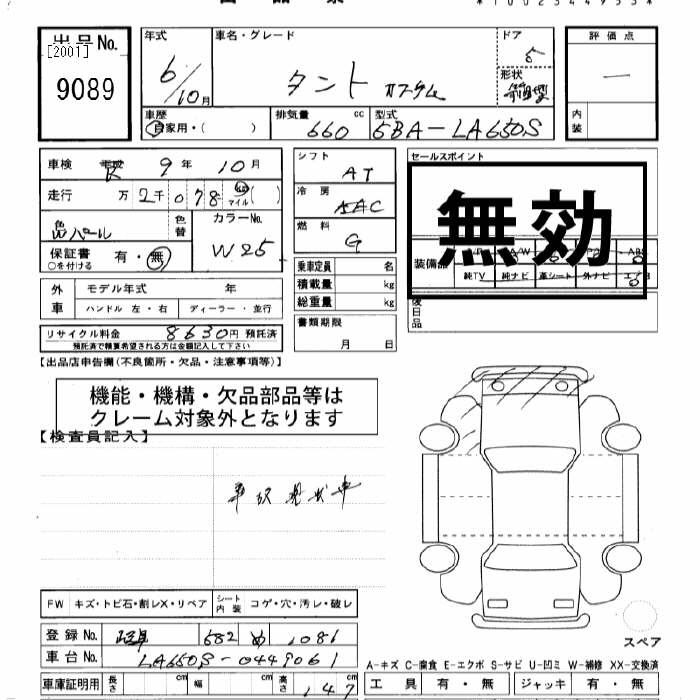 出品No.
[2001]
9089
年式
6/10月
車名・グレード
タント カスタム
ドア
5
形状
箱型
評価点
一
内装
車歴
自家用・( )
排気量
660 cc
型式
5BA-LA650S
車検 R 9年 10月
走行 万 2千 078 km マイル( )
色替
カラーNo.
W25
保証書 有・無
○を付ける
外車
モデル年式 年
ハンドル 左・右
ディーラー・並行
リサイクル料金 8630円 預託済
預託済で精算希望される方は金額記入して下さい
シフト
AT
冷房
AAC
燃料
G
乗車定員 名
積載量 kg
総重量 kg
書類期限
月 日
セールスポイント
無効
装備品
純TV 純ナビ 革シート 外ナビ
後日品
【出品店申告欄(不良箇所・欠品・注意事項等)】
機能・機構・欠品部品等は
クレーム対象外となります
【検査員記入】
現状車
FW キズ・トビ石・割レX・リペア
シート内装 コゲ・穴・汚レ・破レ
スペア
登録No. 582 め 1086
車台No. LA650S-0449061
A-キズ C-腐食 E-エクボ S-サビ U-凹ミ W-補修 XX-交換済
車庫証明用 長さ cm 幅 cm 高さ 147 cm
工具 有・無 ジャッキ 有・無